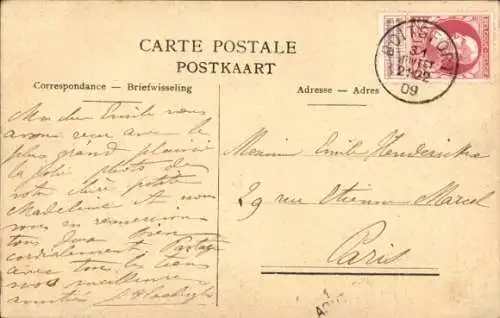 CARTE POSTALE
POSTKAART
Correspondance — Briefwisseling
Adresse — Adres
BOITSFORT
31
21-22
09
Mon cher Emile nous
avons reçu avec le
plus grand plaisir
la jolie photo de
votre chère petite
Madeleine et nous
vous en remercions
tous deux bien
cordialement. Partagez
avec tous les tiens
nos meilleures
amitiés
Monsieur Emile Henderickx
29 rue Etienne Marcel
Paris
1